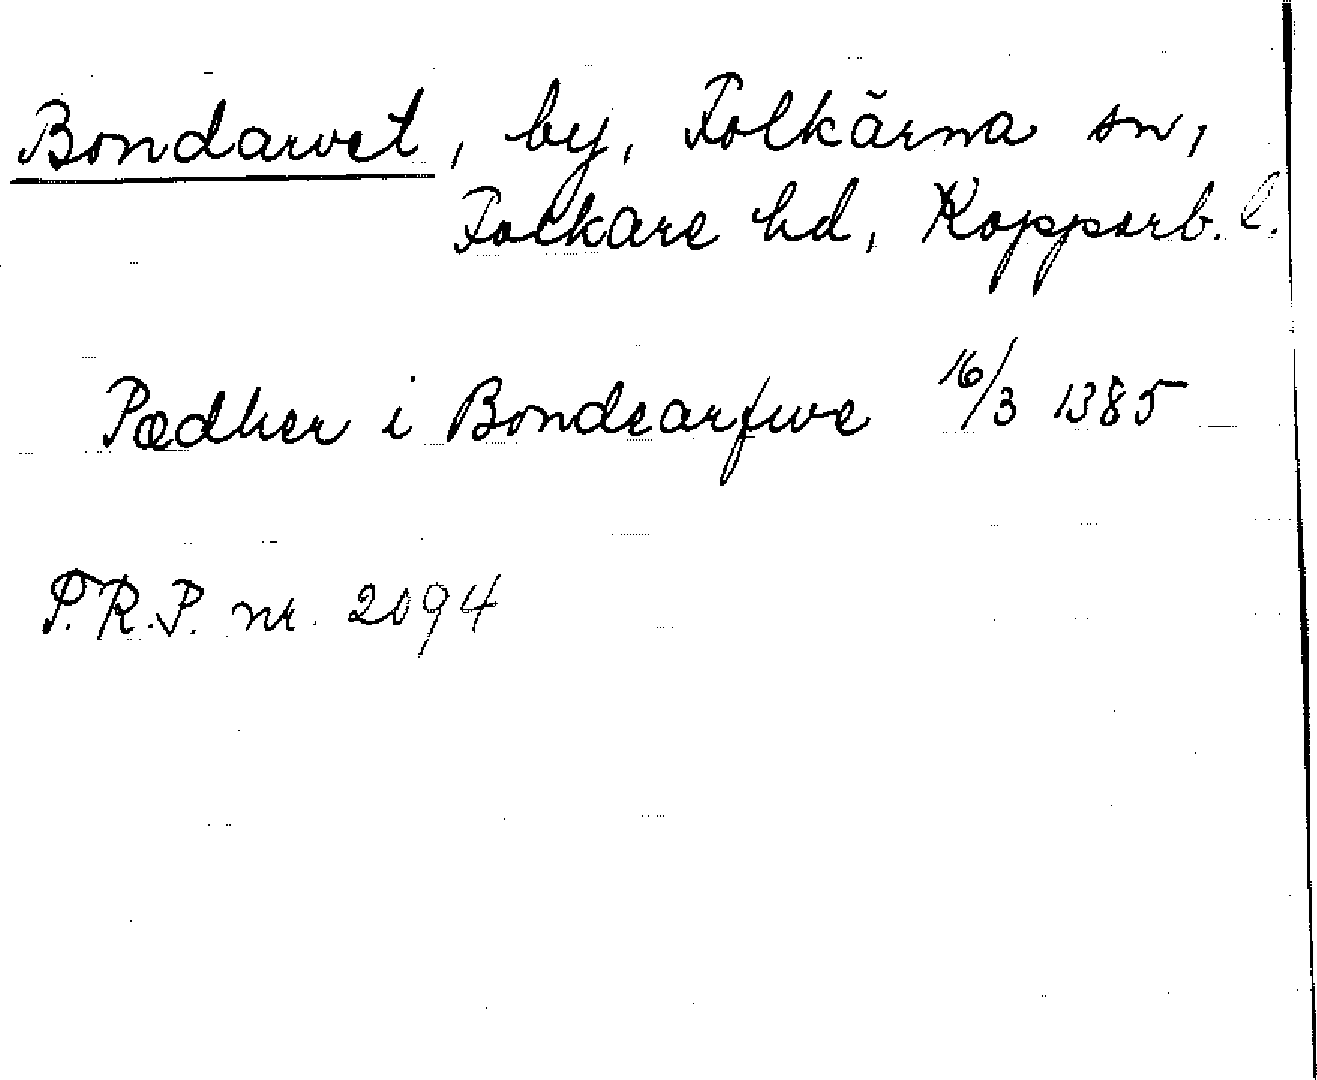 Bondarvet, by, Folkärna sn,
Folkare hd, Kopparb. l.
Pædher i Bondearfwe 16/3 1385
P.R.P. nr. 2094